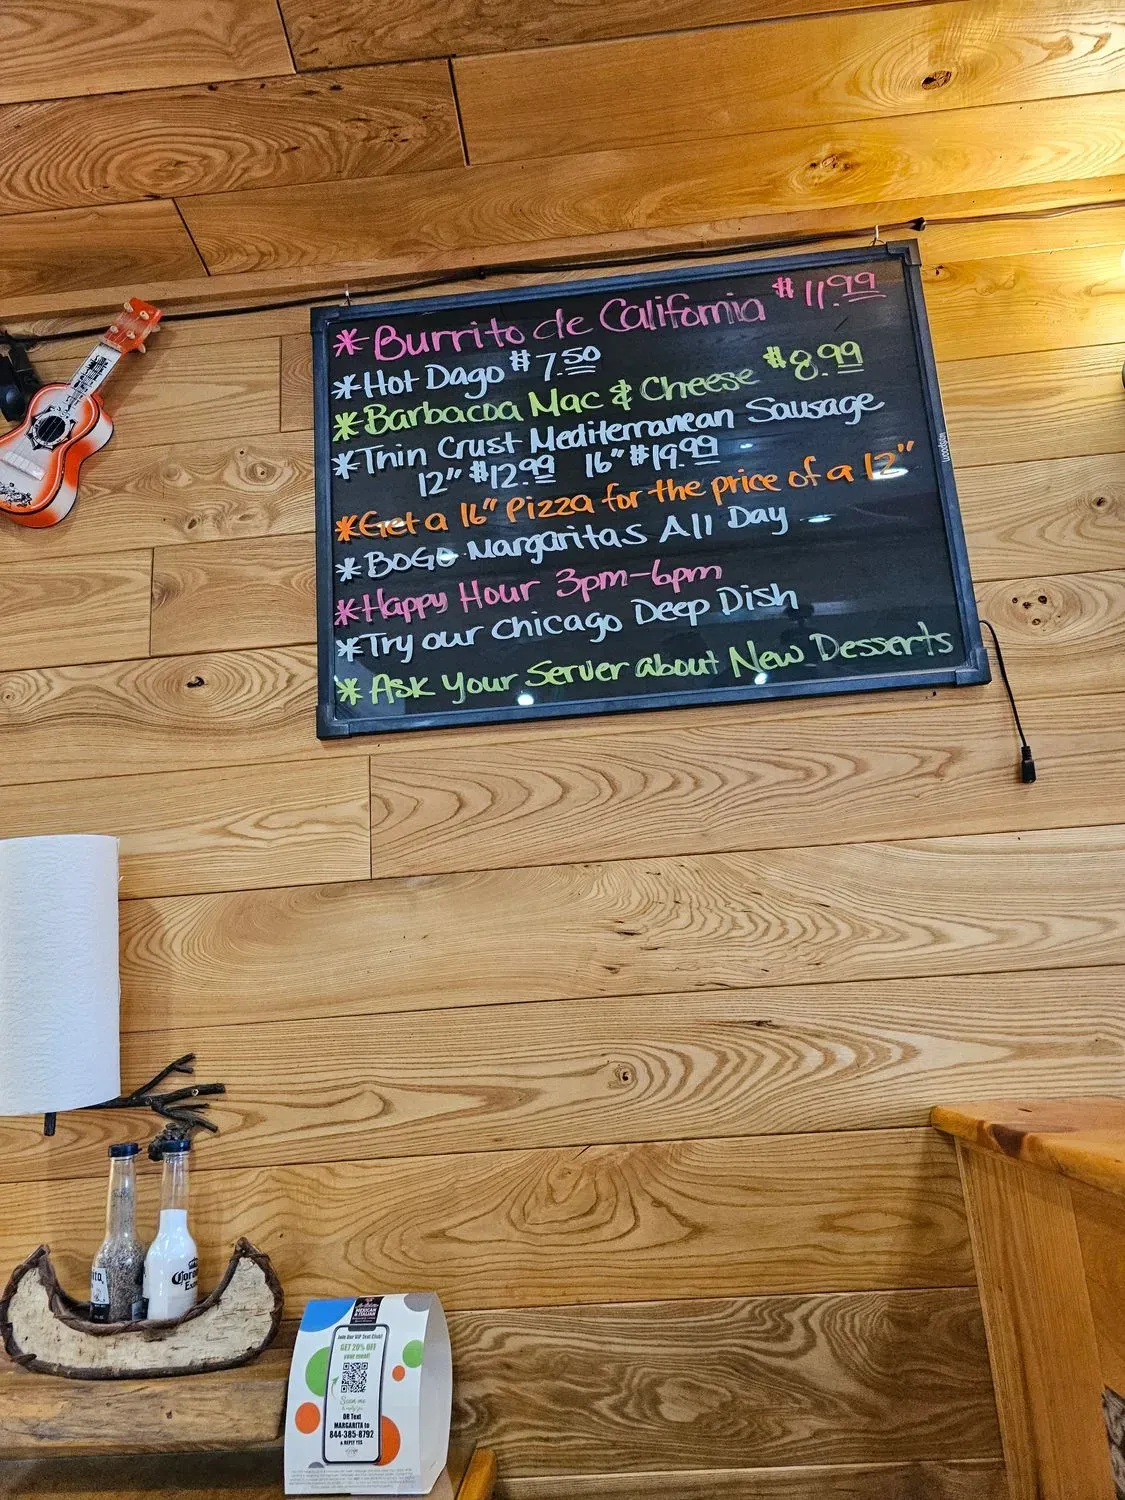 *Burrito de California $11.99
*Hot Dago $7.50
*Barbacoa Mac & Cheese $8.99
*Thin Crust Mediterranean Sausage
12" $12.99 16" $19.99
*Get a 16" Pizza for the price of a 12"
*BOGO Margaritas All Day
*Happy Hour 3pm-6pm
*Try our Chicago Deep Dish
*Ask your Server about New Desserts
woodsam
Corona
Extra
MEXICAN
& ITALIAN
Join Our VIP Text Club!
GET 20% OFF
your meal!
Scan me
OR Text
MARGARITA to
844-385-8792
& REPLY YES